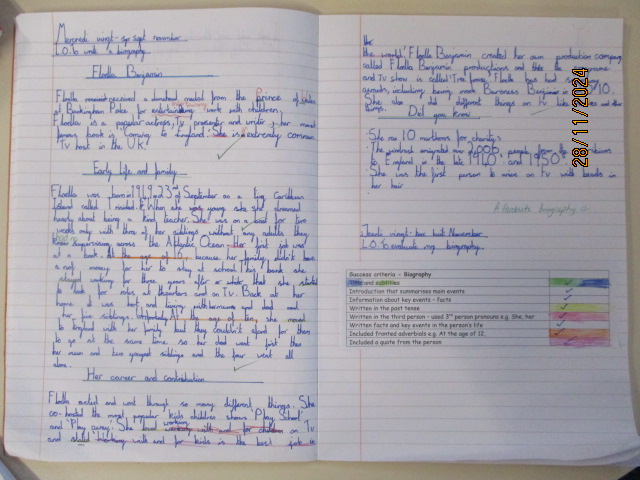 Mercredi vingt-sept november
L.O. to write a biography
Floella Benjamin
Floella received a donated medal from the Prince of Wales
at Buckingham Palace for entertaining work with children.
Floella is a popular actress, Tv presenter and writer, her most
famous book is Coming to England. She is extremely common
Tv host in the UK!
Early Life and family
Floella was born in 1949 23rd of September on a tiny Caribbean
island called When she was young she dreamed
about being a kind teacher. She was on a boat for two
weeks only with three of her siblings without any adults they
supervising across the Atlantic Ocean. Her first job was
at a bank. At the age of 16 because her family didn't have
money for her to stay at school. His bank she
stayed working for three years after or while that she started
to look for roles at theaters and on Tv. Back at her
home it was hot and living with mum and dad and
her five siblings. At the age of she moved
to England with her family but they couldn't afford for them
to go at the same time so her dad went first then
her mum and two youngest siblings and the four went all
alone.
Her career and contribution
Floella acted and went through so many different things. She
co-hosted the most popular kids children shows 'Play School'
and 'Play away'. She loved working with and for children on Tv
and said 'Working with and for kids is the best job in
the
the world' Floella Benjamin created her own production company
called Floella Benjamin productions and the programme
and Tv show is called 'Tree house'. Floella has had
awards, including being made Baroness Benjamin in 2010.
She also did different things on Tv like and other
things.
Did you know
• She ran 10 marathons for charity.
• The people from the
to England in the late 1940s and 1950s
• She was the first person to be on Tv with beads in
her hair
A fantastic biography
Jeudi vingt-huit Novembre
L.O. to evaluate my biography.
Success criteria – Biography
Title and subtitles
Introduction that summarises main events
Information about key events - facts
Written in the past tense
Written in the third person – used 3rd person pronouns e.g. She, her
Written facts and key events in the person's life
Included fronted adverbials e.g. At the age of 12,
Included a quote from the person
28/11/2024